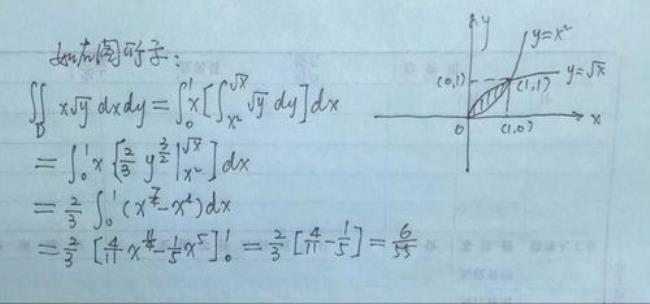 如右图所示:
∬_D x√y dxdy = ∫₀¹ x[∫_{x²}^{√x} √y dy]dx
= ∫₀¹ x[2/3 y^{3/2}|_{x²}^{√x}]dx
= 2/3 ∫₀¹ (x^{7/4} - x⁴)dx
= 2/3 [4/11 x^{11/4} - 1/5 x⁵]₀¹ = 2/3 [4/11 - 1/5] = 6/55
y
y=x²
(0,1)
(1,1)
y=√x
0
(1,0)
x